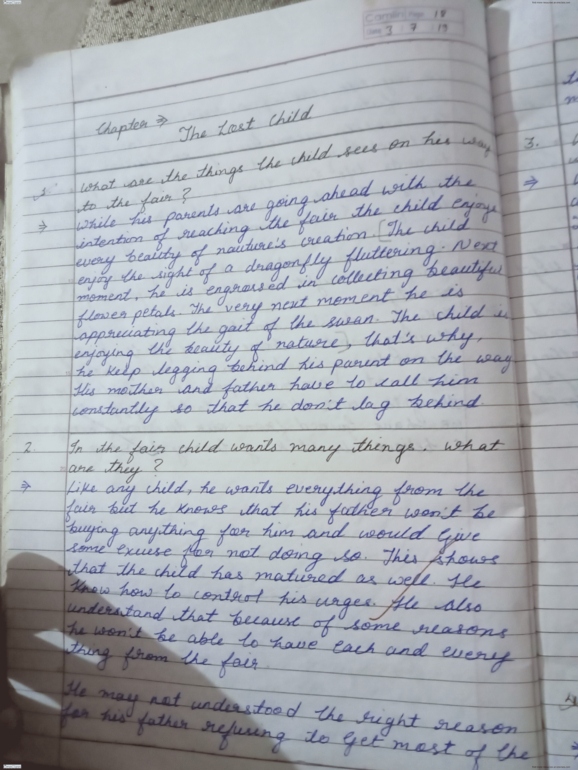 18
Date 3 7 19
Chapter ⇒ The Lost Child
1. What are the things the child sees on his way
to the fair?
⇒ While his parents are going ahead with the
intention of reaching the fair the child enjoys
every beauty of nauture's creation. [The child
enjoy the sight of a dragonfly fluttering. Next
moment, he is engrossed in collecting beautiful
flower petals. The very next moment he is
appreciating the gait of the swan. The child is
enjoying the beauty of nature], that's why,
he keep legging behind his parent on the way
His mother and father have to call him
constantly so that he don't lag behind
2. In the fair child wants many things. What
are they?
⇒ Like any child, he wants everything from the
fair but he knows that his father won't be
buying anything for him and would give
some excuse for not doing so. This shows
that the child has matured as well. He
know how to control his urges. He also
understand that because of some reasons
he won't be able to have each and every
thing from the fair
He may not understood the right reason
for his father refusing to get most of the
3.
⇒